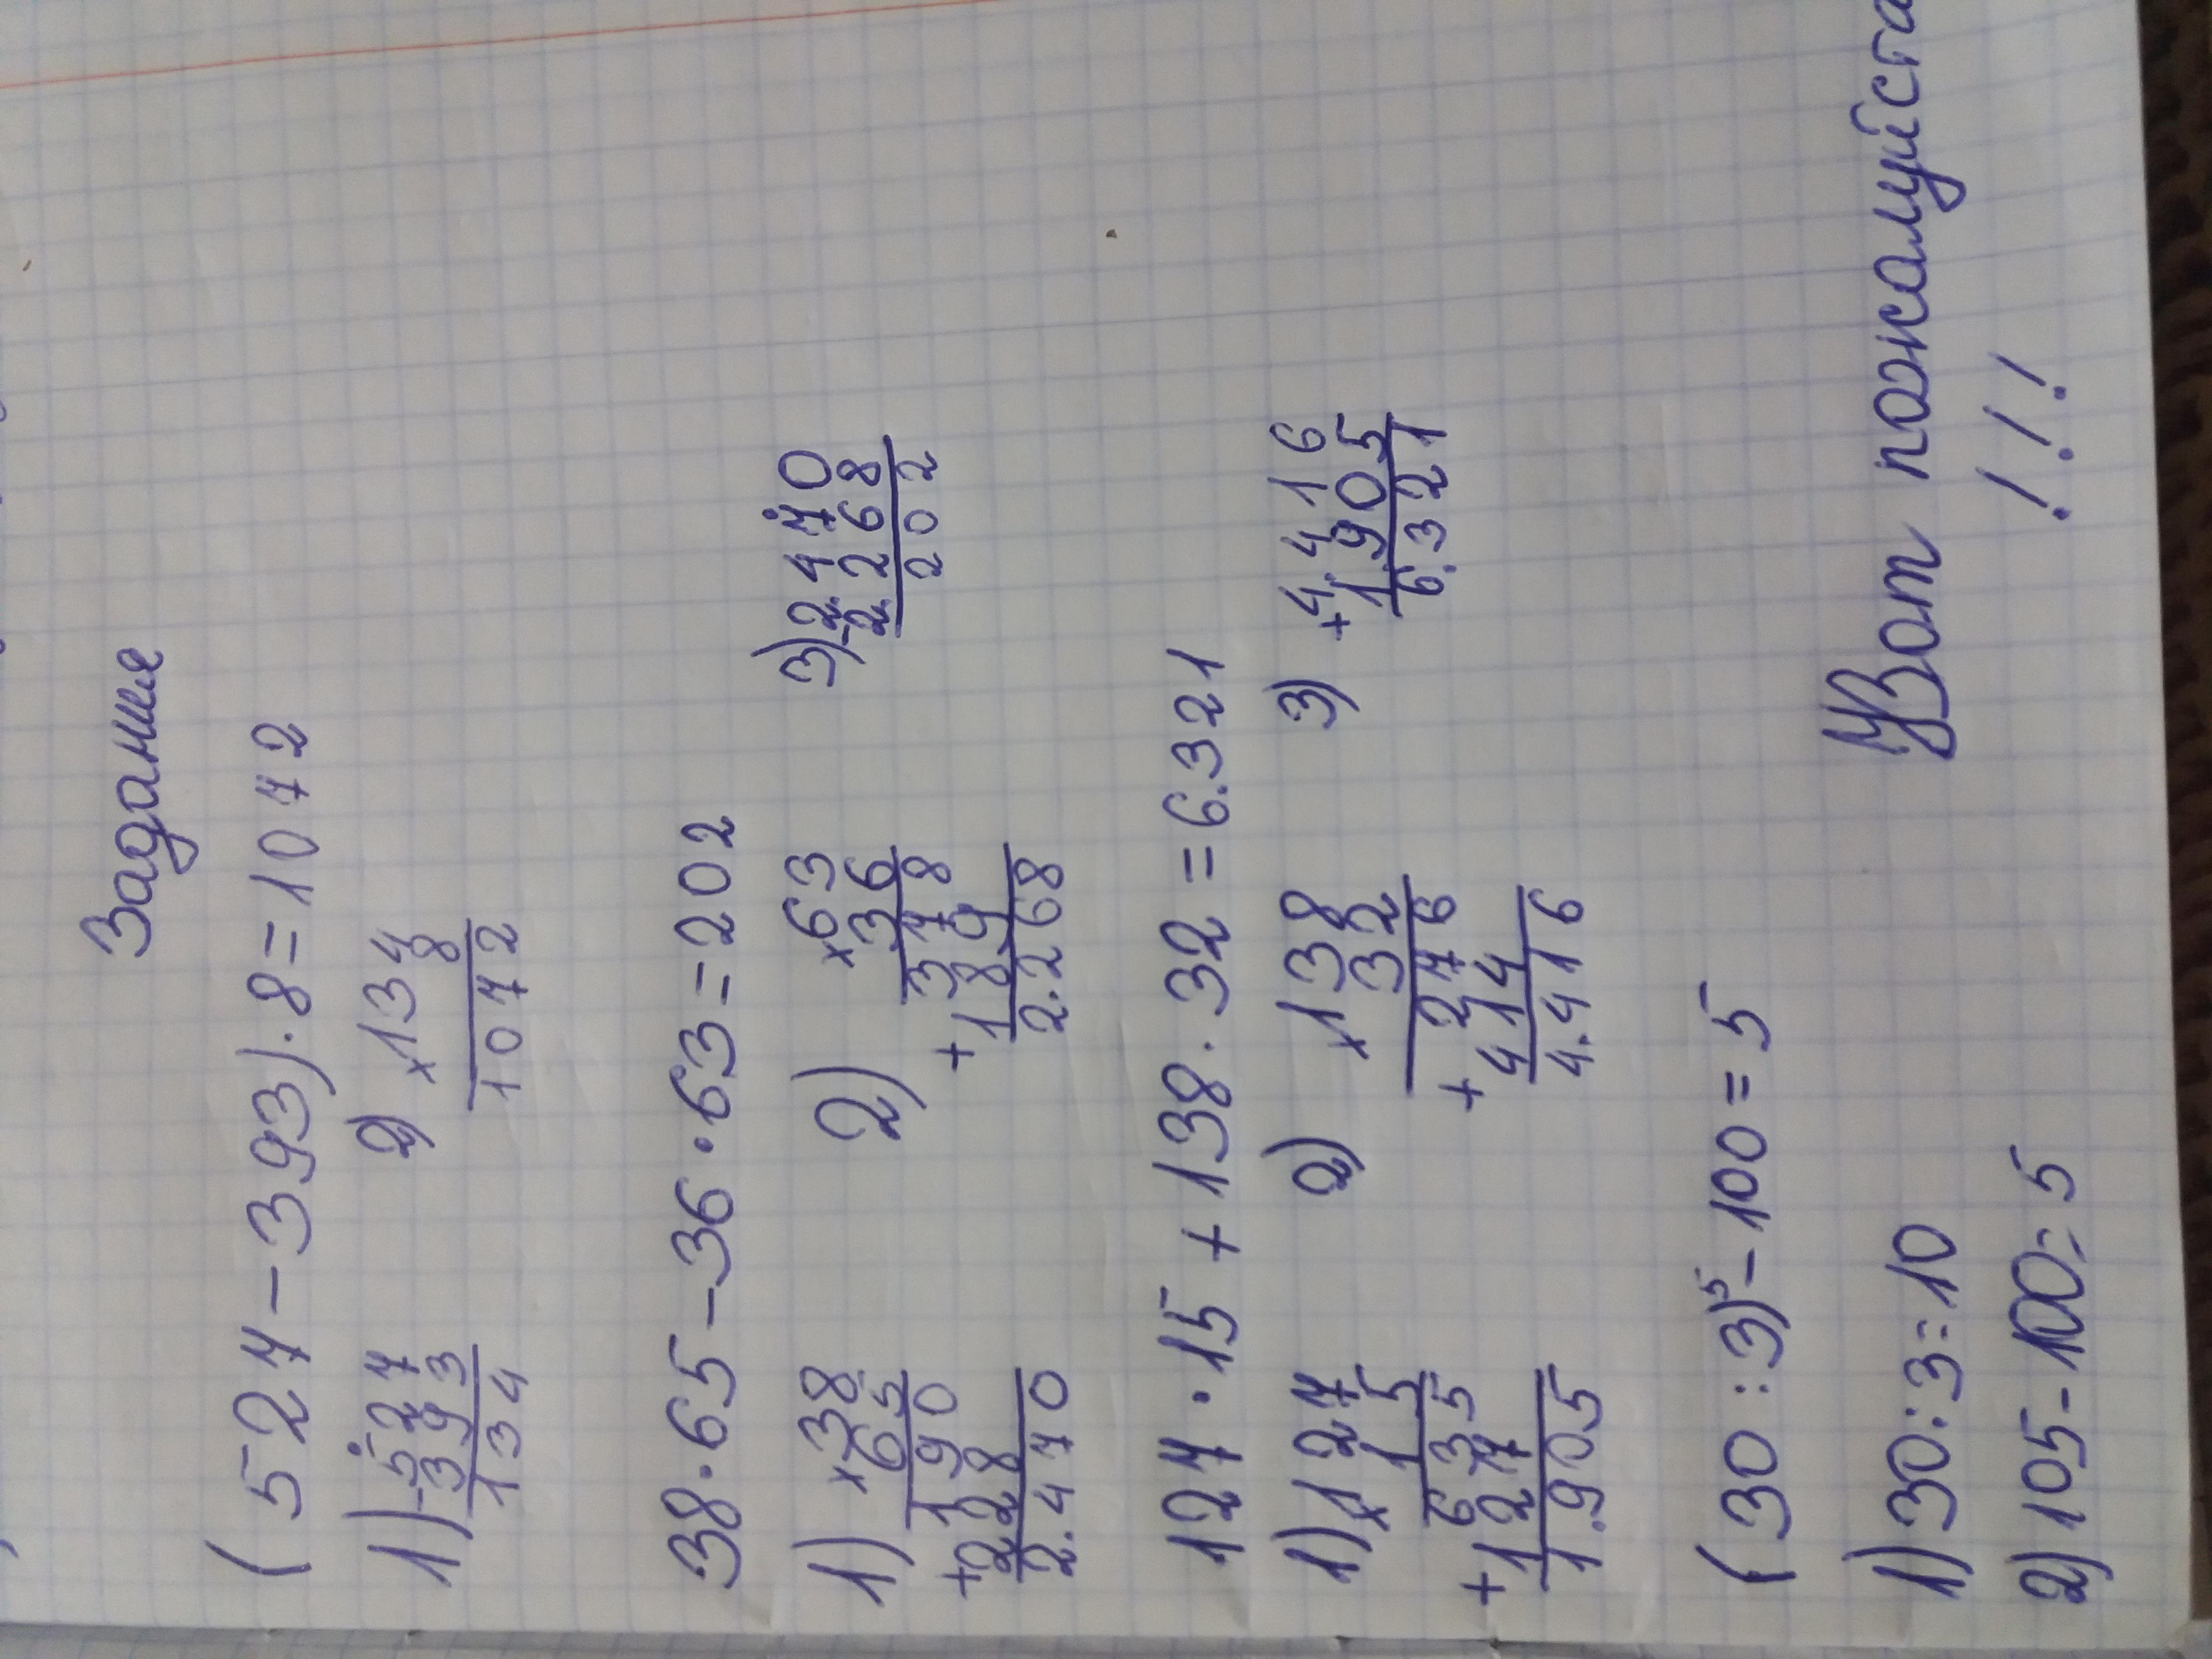 Задание
(527-393)·8=1072
1) -527 2) ×134
393 8
134 1072
38·65-36·63=202
1) ×38 2) ×63 3) -2.470
65 36 2.268
190 378 202
+228 +189
2.470 2.268
127·15+138·32=6.321
1) ×127 2) ×138 3) +4.416
15 32 1.905
635 276 6.321
+127 +414
1.905 4.416
(30:3)⁵-100=5
1) 30:3=10
2) 105-100=5
Вот пожалуйста
!!!